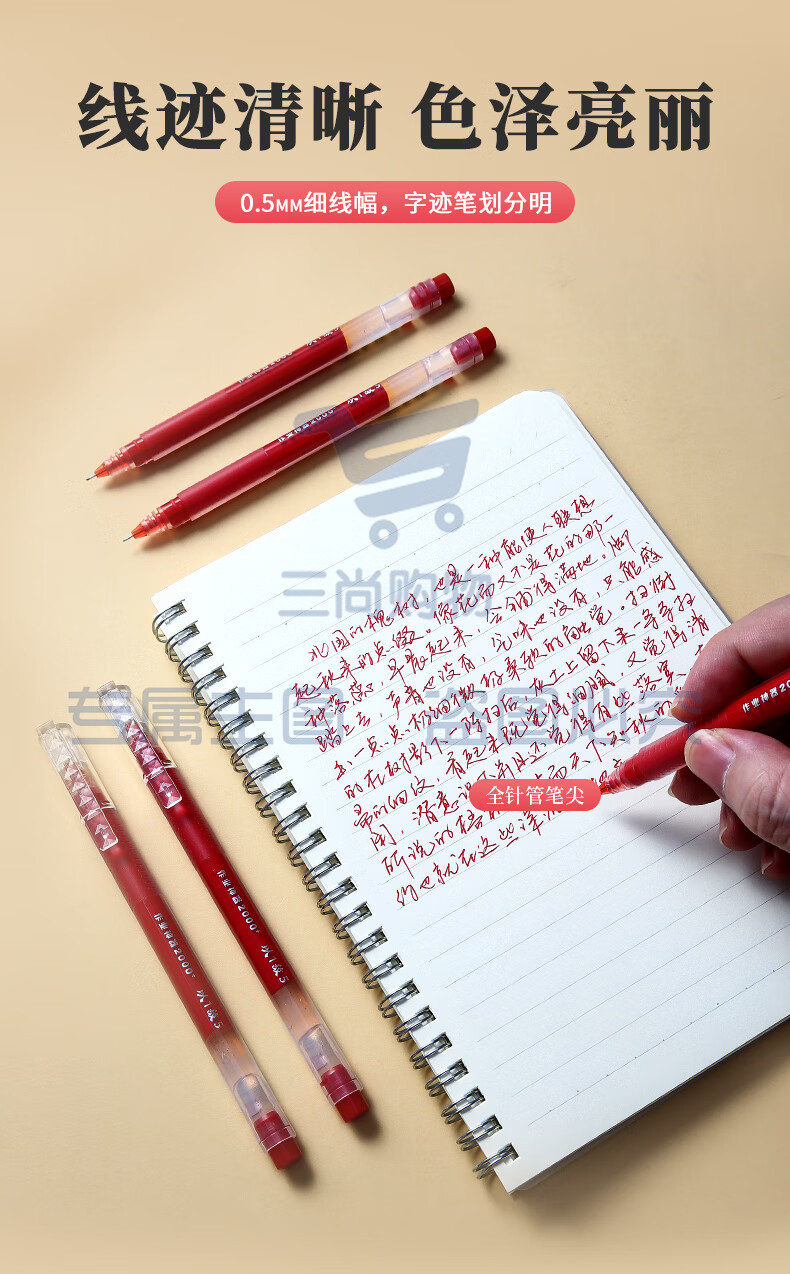 线迹清晰 色泽亮丽
0.5MM细线幅，字迹笔划分明
作业神器2000+
以1敌5
作业神器2000+
以1敌5
三尚购物
北国的槐树，也是一种能使人联想
起秋来的点缀。像花而又不是花的那一
种落蕊，早晨起来，会铺得满地。脚
踏上去，声音也没有，气味也没有，只能感
出一点点极微细极柔软的触觉。扫街
的在树影下一阵扫后，灰土上留下来一条条扫
帚的细纹，看起来既觉得细腻，又觉得清
闲，潜意识下并且还觉得有些落寞，
所说的梧
约也就在这些深
专属主图 盗图必究
作业神器20
全针管笔尖
作业神器2000+
以1敌5
作业神器2000+
以1敌5